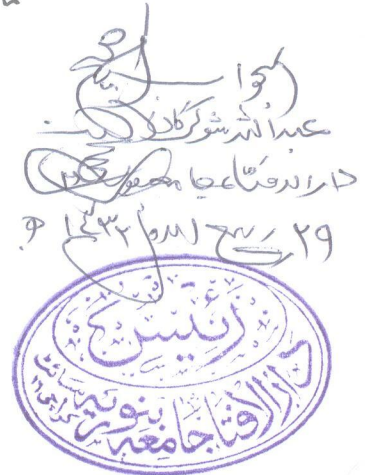 الجواب صحیح
عبداللہ شوکت
دارالافتاء جامعہ بنوریہ
۲۹ ربیع الاول ۱۴۳۲ ھ
رئیس
دارالافتا جامعہ بنوریہ سائٹ کراچی ۱۶